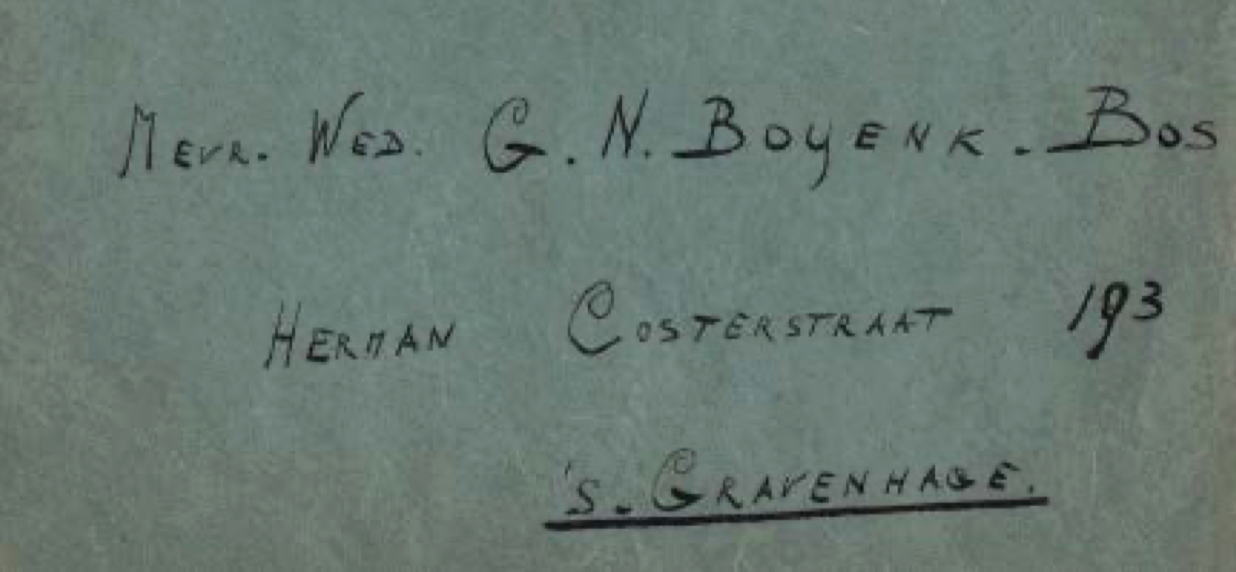 Mevr. Wed. G. N. Boyenk. - Bos
Herman Costerstraat 193
's. Gravenhage.